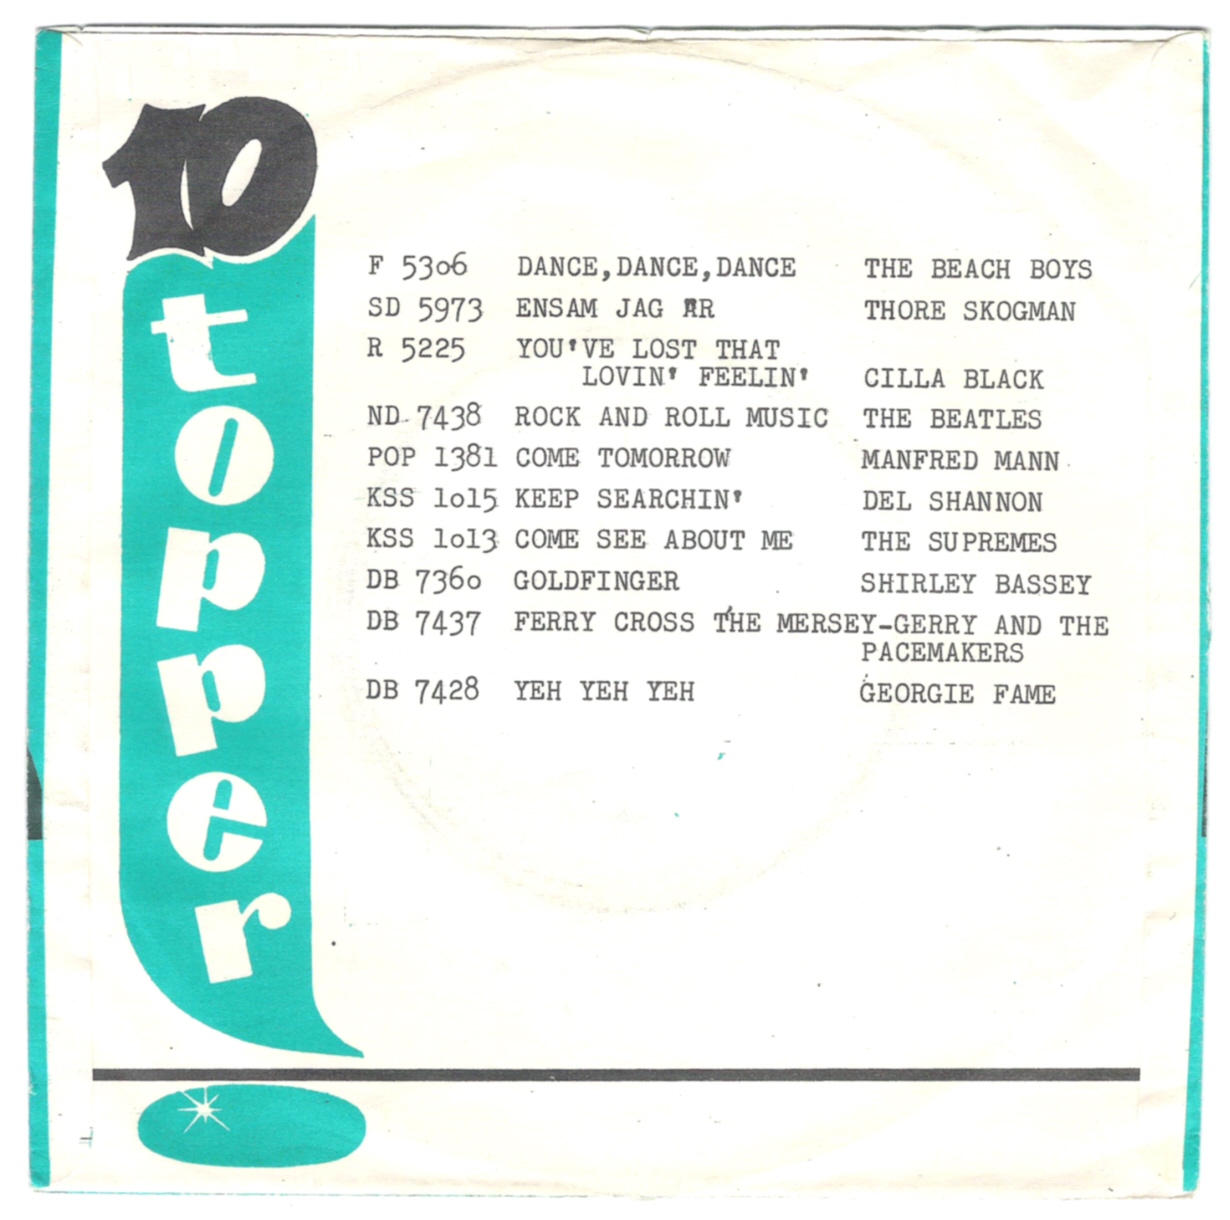 10
topper
F 53o6 DANCE,DANCE,DANCE THE BEACH BOYS
SD 5973 ENSAM JAG ÄR THORE SKOGMAN
R 5225 YOU'VE LOST THAT
LOVIN' FEELIN' CILLA BLACK
ND 7438 ROCK AND ROLL MUSIC THE BEATLES
POP 1381 COME TOMORROW MANFRED MANN
KSS 1o15 KEEP SEARCHIN' DEL SHANNON
KSS 1o13 COME SEE ABOUT ME THE SUPREMES
DB 736o GOLDFINGER SHIRLEY BASSEY
DB 7437 FERRY CROSS THE MERSEY-GERRY AND THE
PACEMAKERS
DB 7428 YEH YEH YEH GEORGIE FAME